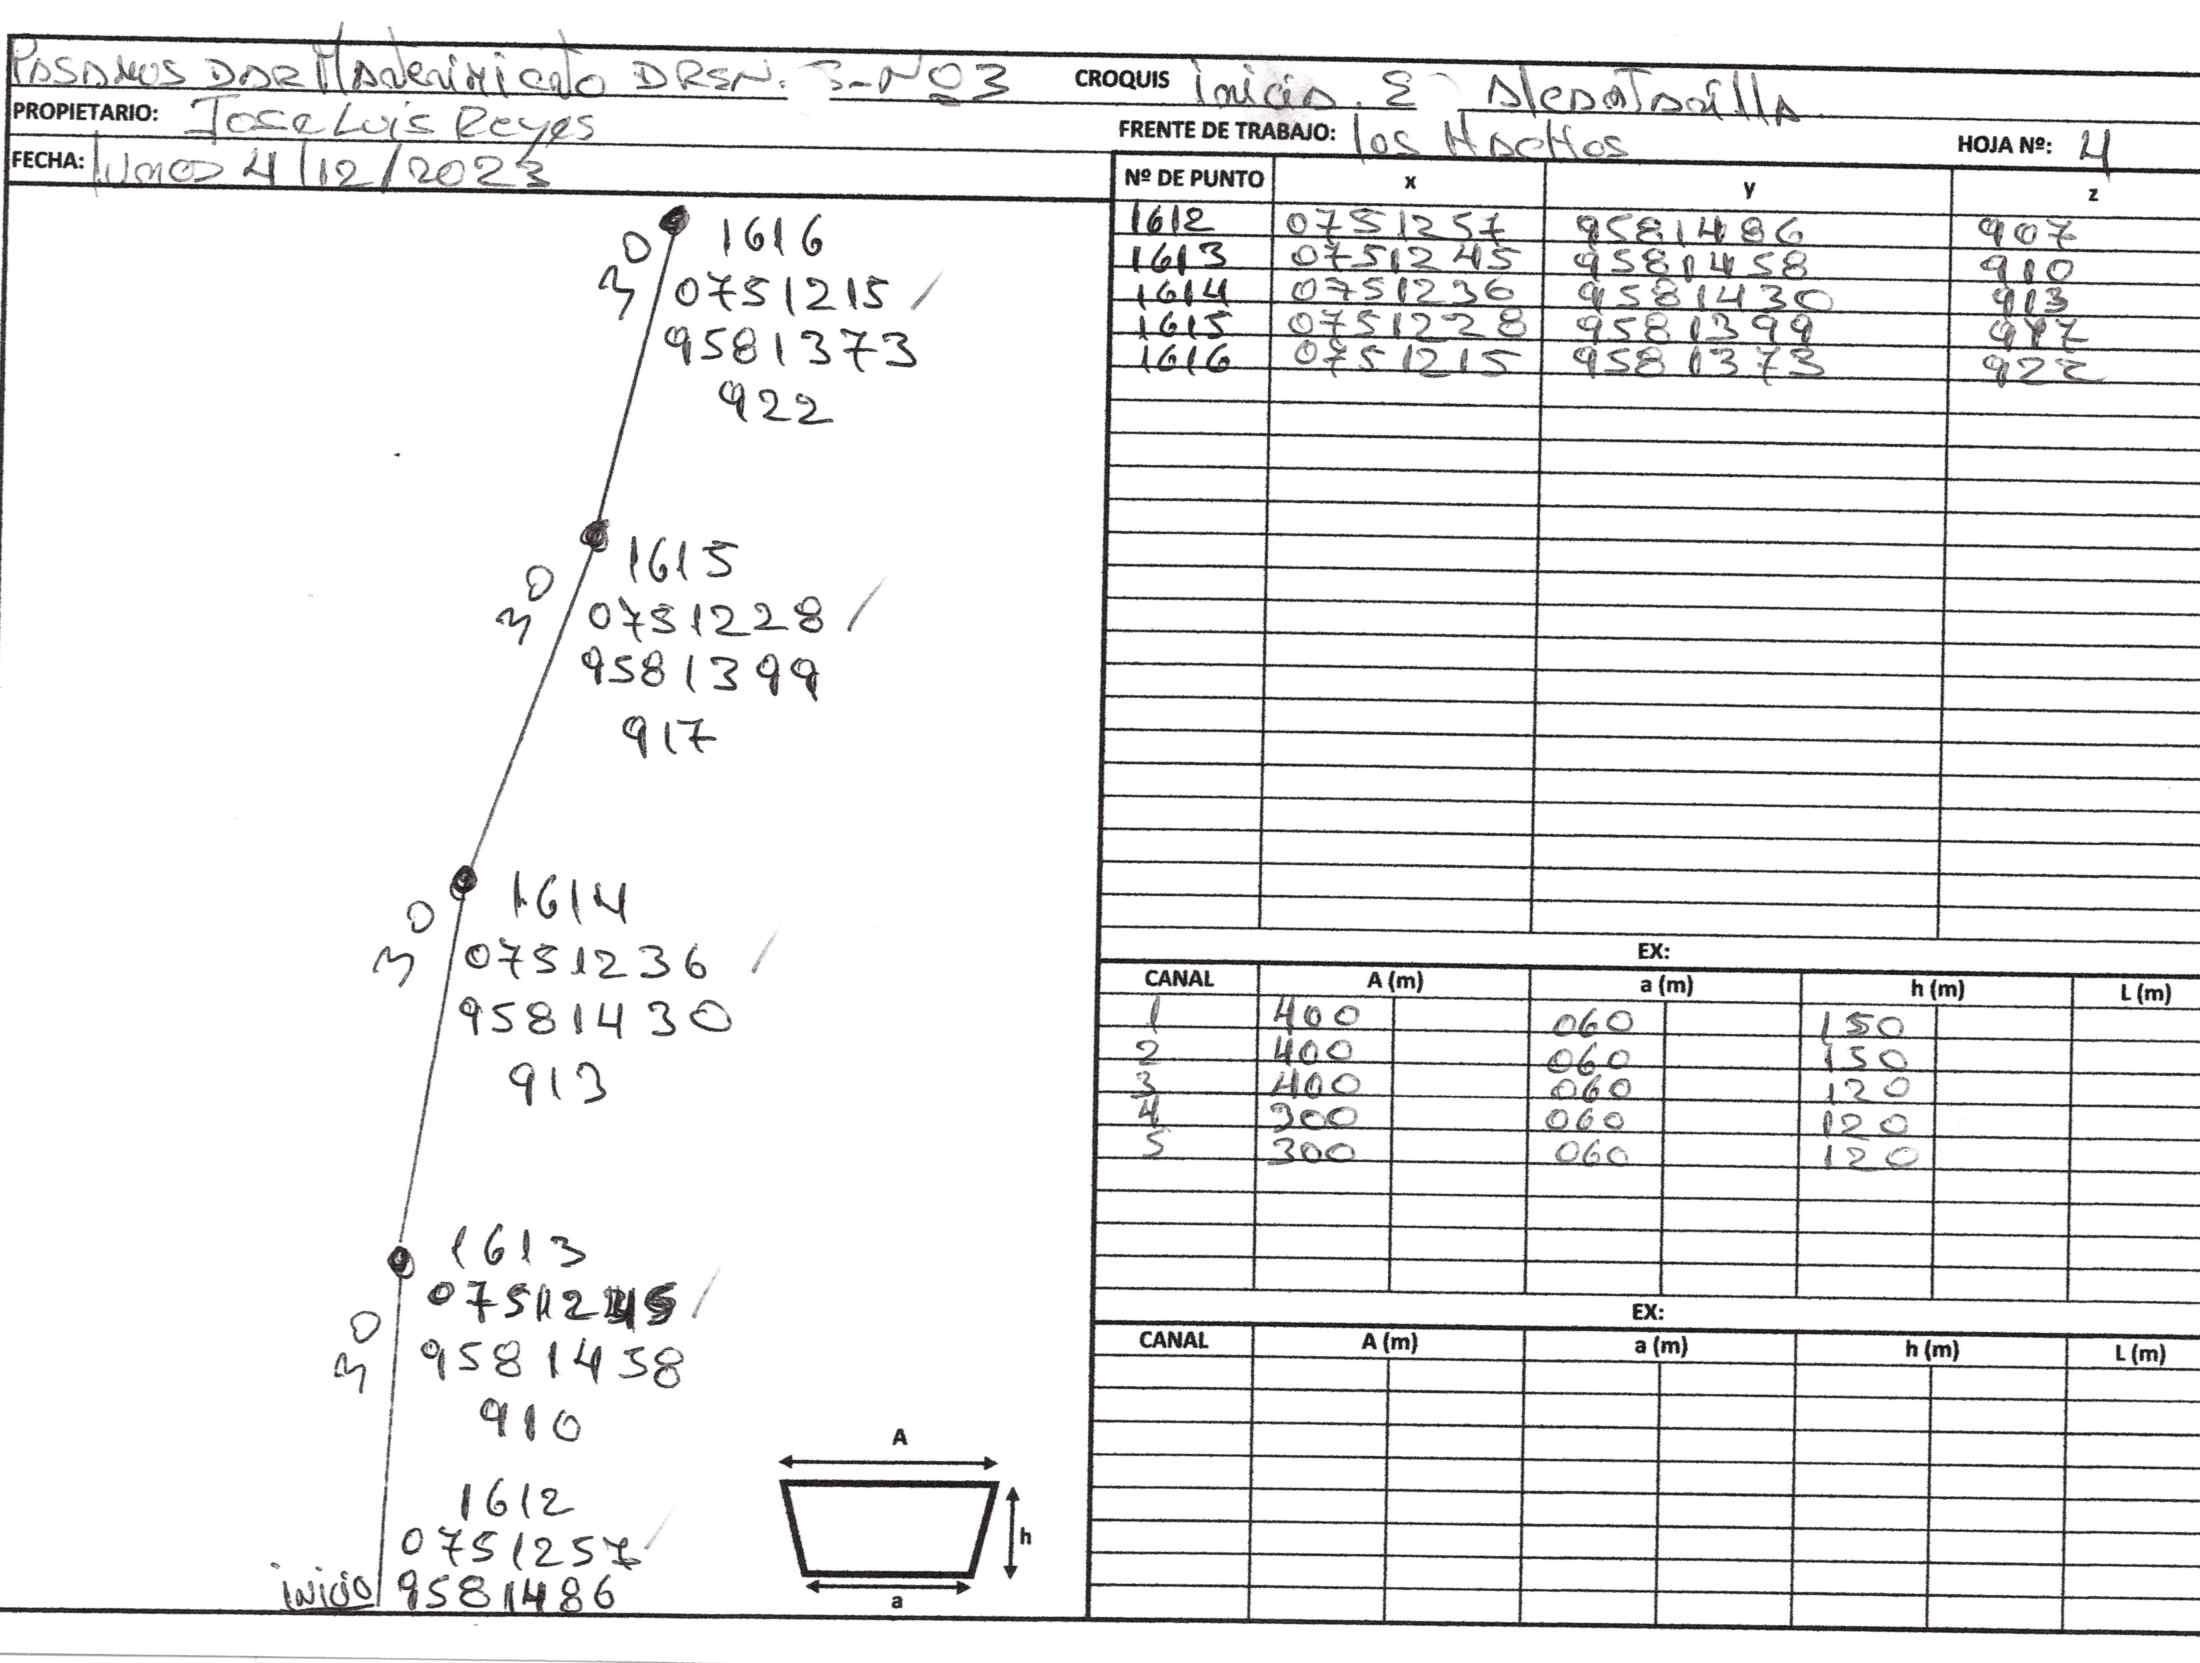 PASAMOS DAR Mantenimiento DREN. 3-Nº3 CROQUIS inicia. E
PROPIETARIO: Jose Luis Reyes FRENTE DE TRABAJO: los HACHOS HOJA Nº: 4
FECHA: lunes 4/12/2023
Nº DE PUNTO x y z
1612 0751257 9581486 907
1613 0751245 9581458 910
1614 0751236 9581430 913
1615 0751228 9581399 917
1616 0751215 9581373 922
30 1616
0751215 /
9581373
922
30 1615
0751228 /
9581399
917
30 1614
0751236 /
9581430
913
30 1613
0751245 /
9581458
910
1612
0751257 /
inicio 9581486
A
h
a
EX:
CANAL A (m) a (m) h (m) L (m)
1 400 060 150
2 400 060 150
3 400 060 120
4 300 060 120
5 300 060 120
EX:
CANAL A (m) a (m) h (m) L (m)